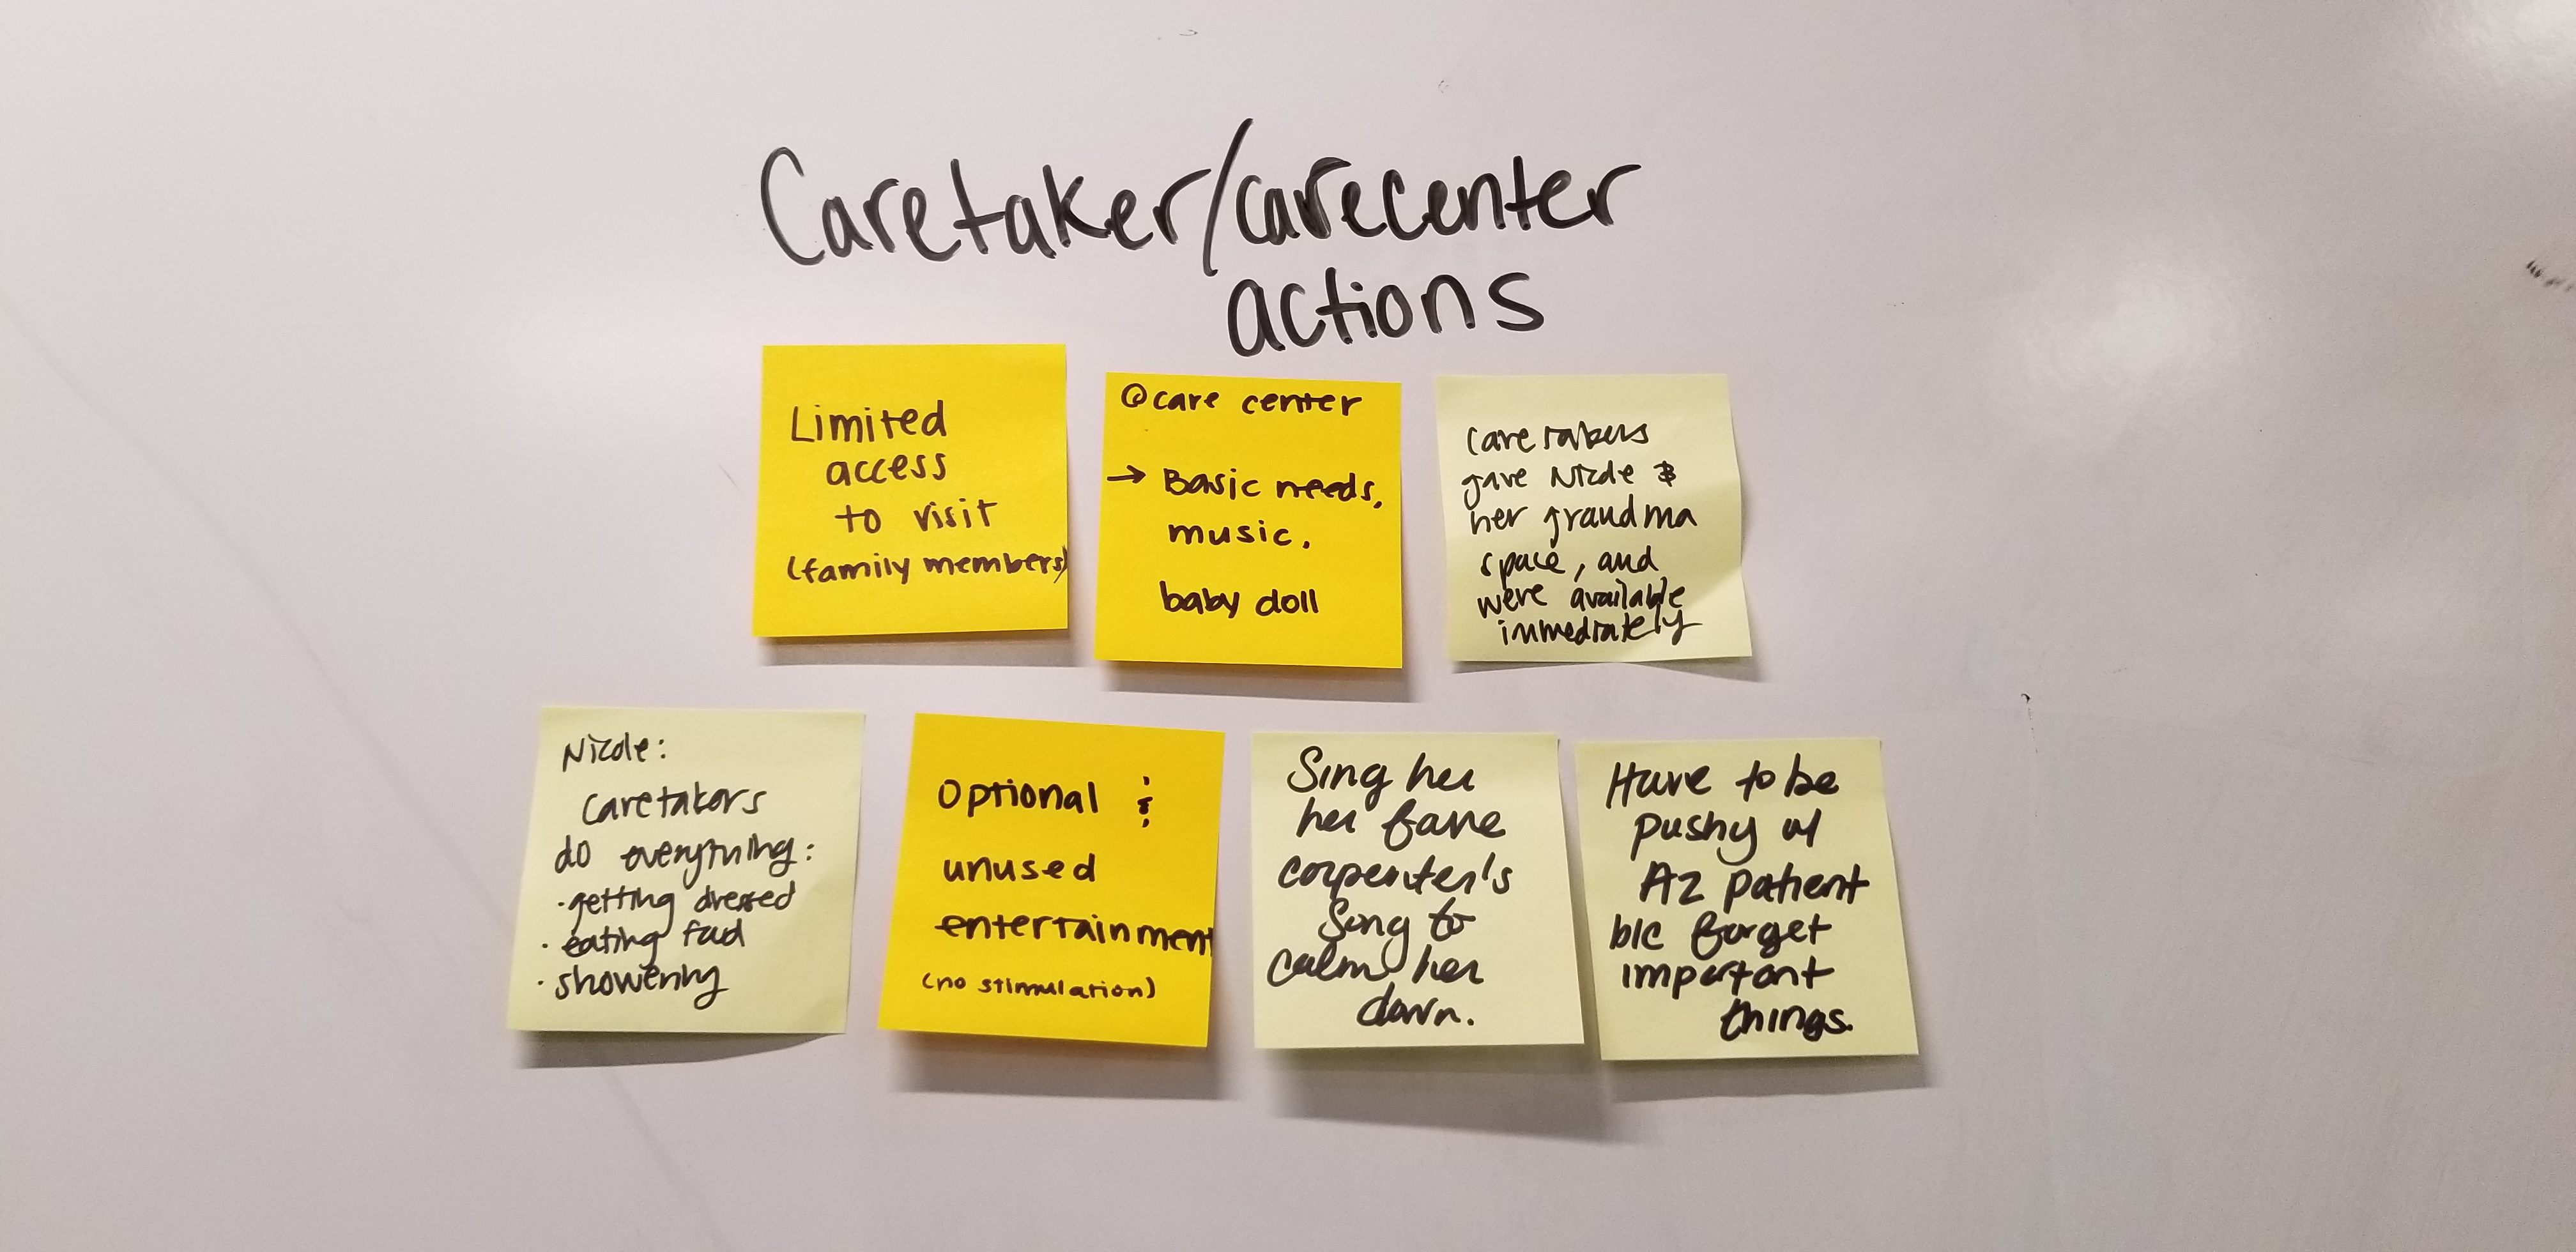 Caretaker/carecenter
actions
Limited
access
to visit
(family members)
@care center
→ Basic needs,
music.
baby doll
caretakers
gave Nicole &
her grandma
space, and
were available
immediately
Nicole:
caretakers
do everything:
· getting dressed
· eating food
· showering
Optional &
unused
entertainment
(no stimulation)
Sing her
her fave
carpenter's
song to
calm her
down.
Have to be
pushy w/
AZ patient
b/c forget
important
things.